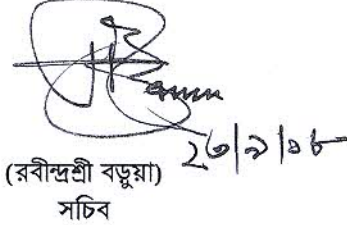 ২৬|৯|১৮
(রবীন্দ্রশ্রী বড়ুয়া)
সচিব